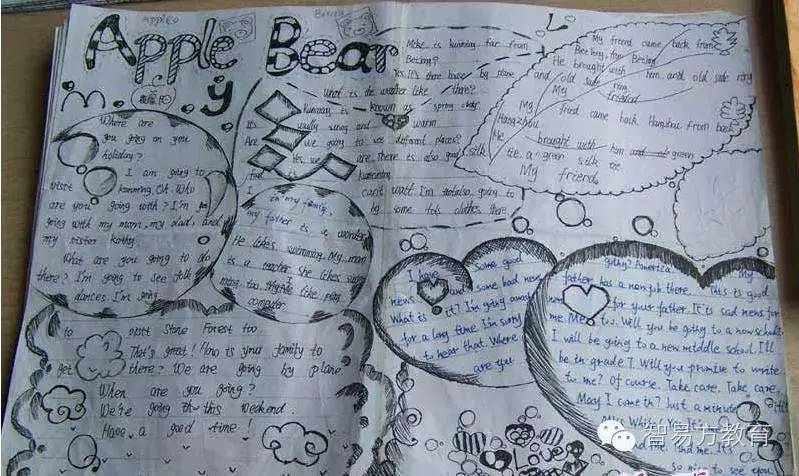 Apple Bear
m.y
Where are
you going on you
holiday?
I am going to
visit kunming. Oh. Who
are you going with? I'm
going with my mom, my dad, and
my sister kathy.
What are you going to do
there? I'm going to see folk
dances. I'm going
to visit Stone Forest too.
That's great! How is your family to
get there? We are going by plane.
When are you going?
We're going this weekend.
Have a good time!
in my family,
my father is a
He likes swimming. My mom
is a teacher. She likes
too. like play
computer
is kunming far from
Beijing?
Yes. It's three hours by plane
is the weather like there?
kunming is known as spring
It's usually sunny and warm
Are we going to see different places?
Yes we are. There is also good silk
kunming
I can't wait. I'm going to
by some clothes there
My friend came back from
Beijing, from Beijing
He brought with him and old
and old ring
My friend
My fried came back Hangzhou from back
Hangzhou
He brought with him green
tie. a green silk tie
My friend.
I have some good
news and some bad news
What is it? I'm going away
for a long time. I'm sorry
to hear that. Where
are you
going? America. My
father has a new job there. This is good
for your father. It's sad news for
me. Me too. Will you be going to a new school
I will be going to a new middle school. I'll
be in grade 7. Will you promise to write
to me? Of course. Take care. Take care.
May I come in? Just a minute
Miss White. It's
me. It's
to see you
智易方教育